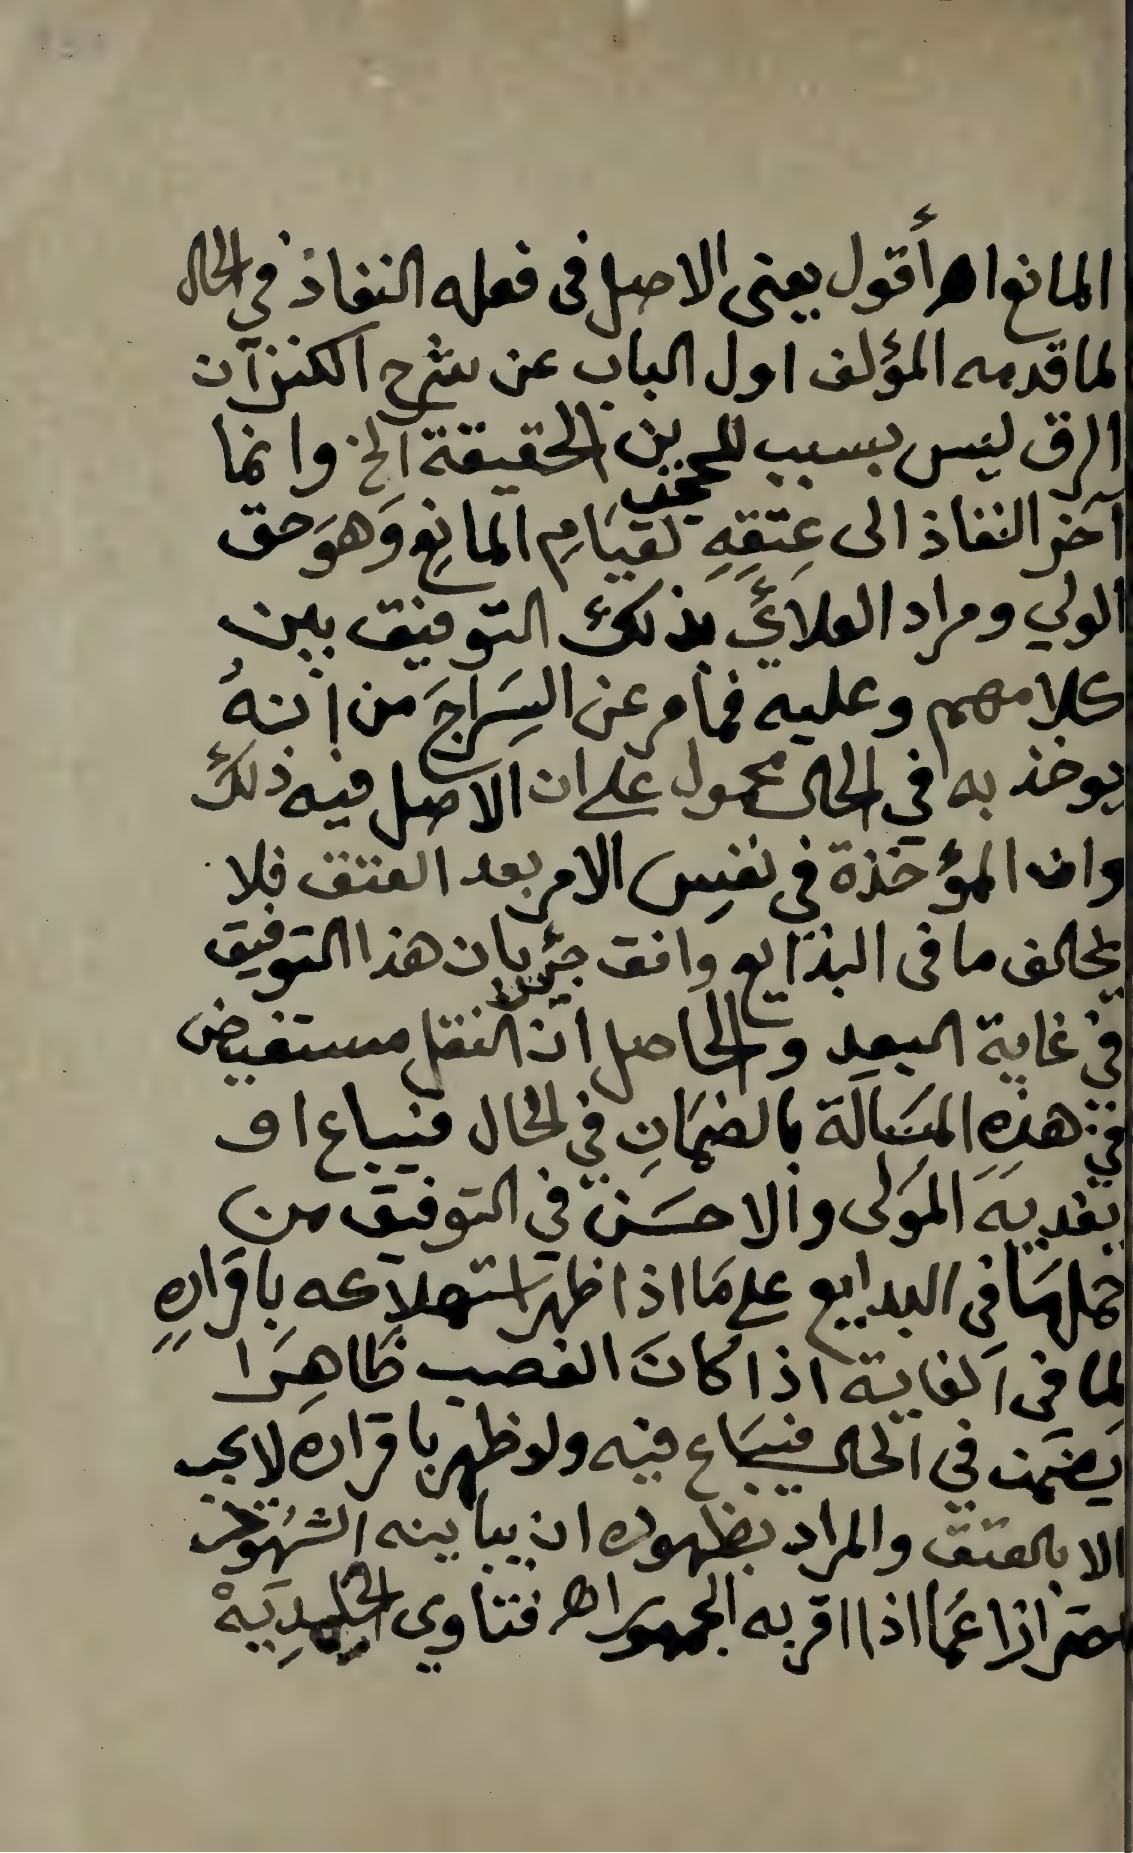 المانع اهـ أقول يعنى الاصل فى فعله النفاذ في الحال
لما قدمه المؤلف اول الباب عن شرح الكنز آن
الرق ليس بسبب للحجر فى الحقيقة الخ وانما
آخر النفاذ الى عِتقِهِ لقيَامِ المانِع وَهوَ حق
الولي ومراد العلائيِّ بذلك التوفيق بين
كلامهم وعليه فما مر عن السِرَاجَ من انهُ
يوخذ به في الحال محمول على ان الاصل فيه ذلك
وان المؤخذة في نفسِ الامر بعد العتق فلا
يخالف ما فى البدايع وافق جريان هذا التوفيق
في غاية البعد والحاصل ان النقل مستفيض
في هذه المسَالَة بالضمَانِ في الحال فيباع او
يفديهَ المَولى والاحسَن في التوفيق من
حملهَا فى البدايع على مَا اذا ظهر استهلاكه باقرارهِ
لِما فى الغاية اذا كانَ الغصب ظاهِرا
يَضمَن في الحال فيبَاع فيه ولو ظهر باقراره لا يجب
الا بالعتق والمراد بظهوره ان يباينه الشهُود
حترازا عَما اذا اقر به الجمهور اهـ فتاوى الحامِديَهْ